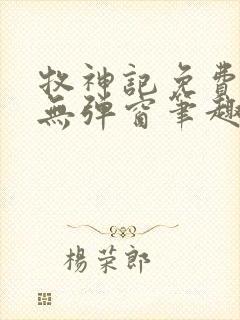 牧神記免費
無彈窗筆趣
楊荣郎